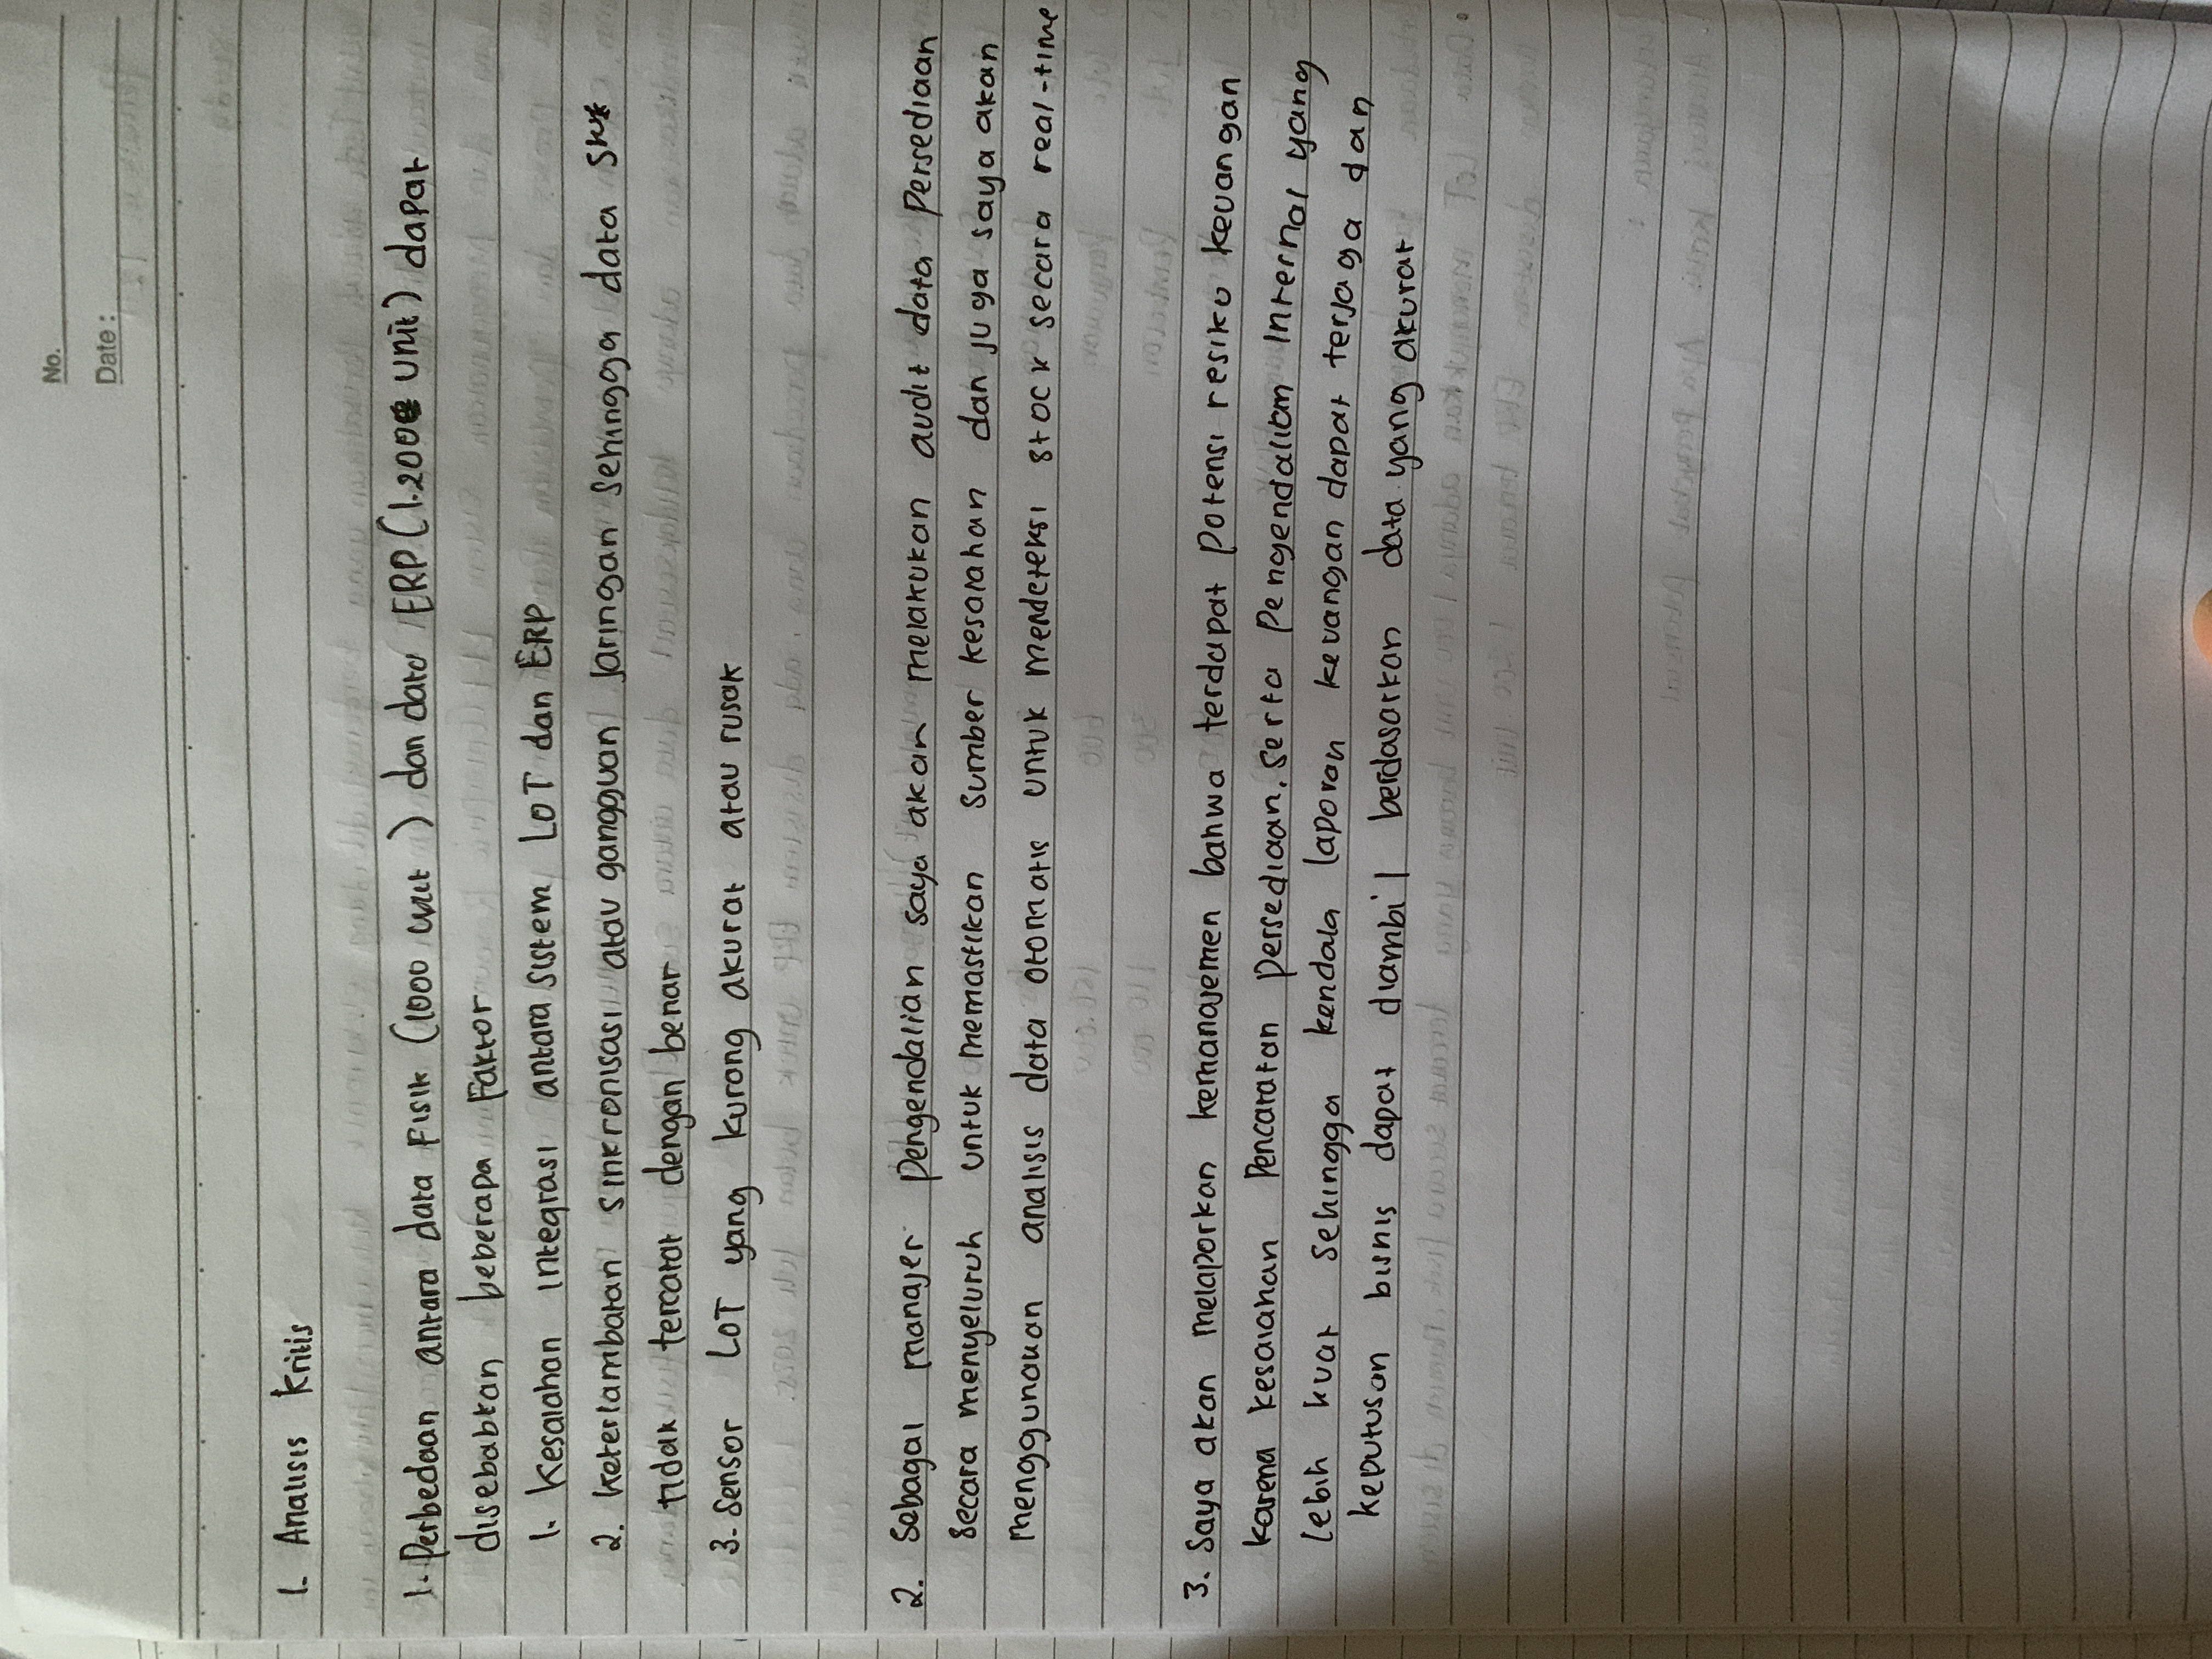 No.
Date:
1. Analisis kritis
1. Perbedaan antara data Fisik (1000 unit) dan data ERP (1.200 unit) dapat
disebabkan beberapa Faktor
1. Kesalahan integrasi antara sistem LOT dan ERP
2. keterlambatan sinkronisasi atau gangguan jaringan sehingga data
tidak tercatat dengan benar
3. Sensor LOT yang kurang akurat atau rusak
2. Sebagai manajer pengendalian saya akan melakukan audit data Persediaan
secara menyeluruh untuk memastikan sumber kesalahan dan juga saya akan
menggunakan analisis data otomatis untuk mendeteksi stock secara real-time
3. Saya akan melaporkan kemanajemen bahwa terdapat Potensi resiko keuangan
karena kesalahan Pencatatan Persediaan, serta Pengendaliam Internal yang
lebih kuat sehingga kendala laporan keuangan dapat terjaga dan
keputusan bisnis dapat diambil berdasarkan data yang akurat